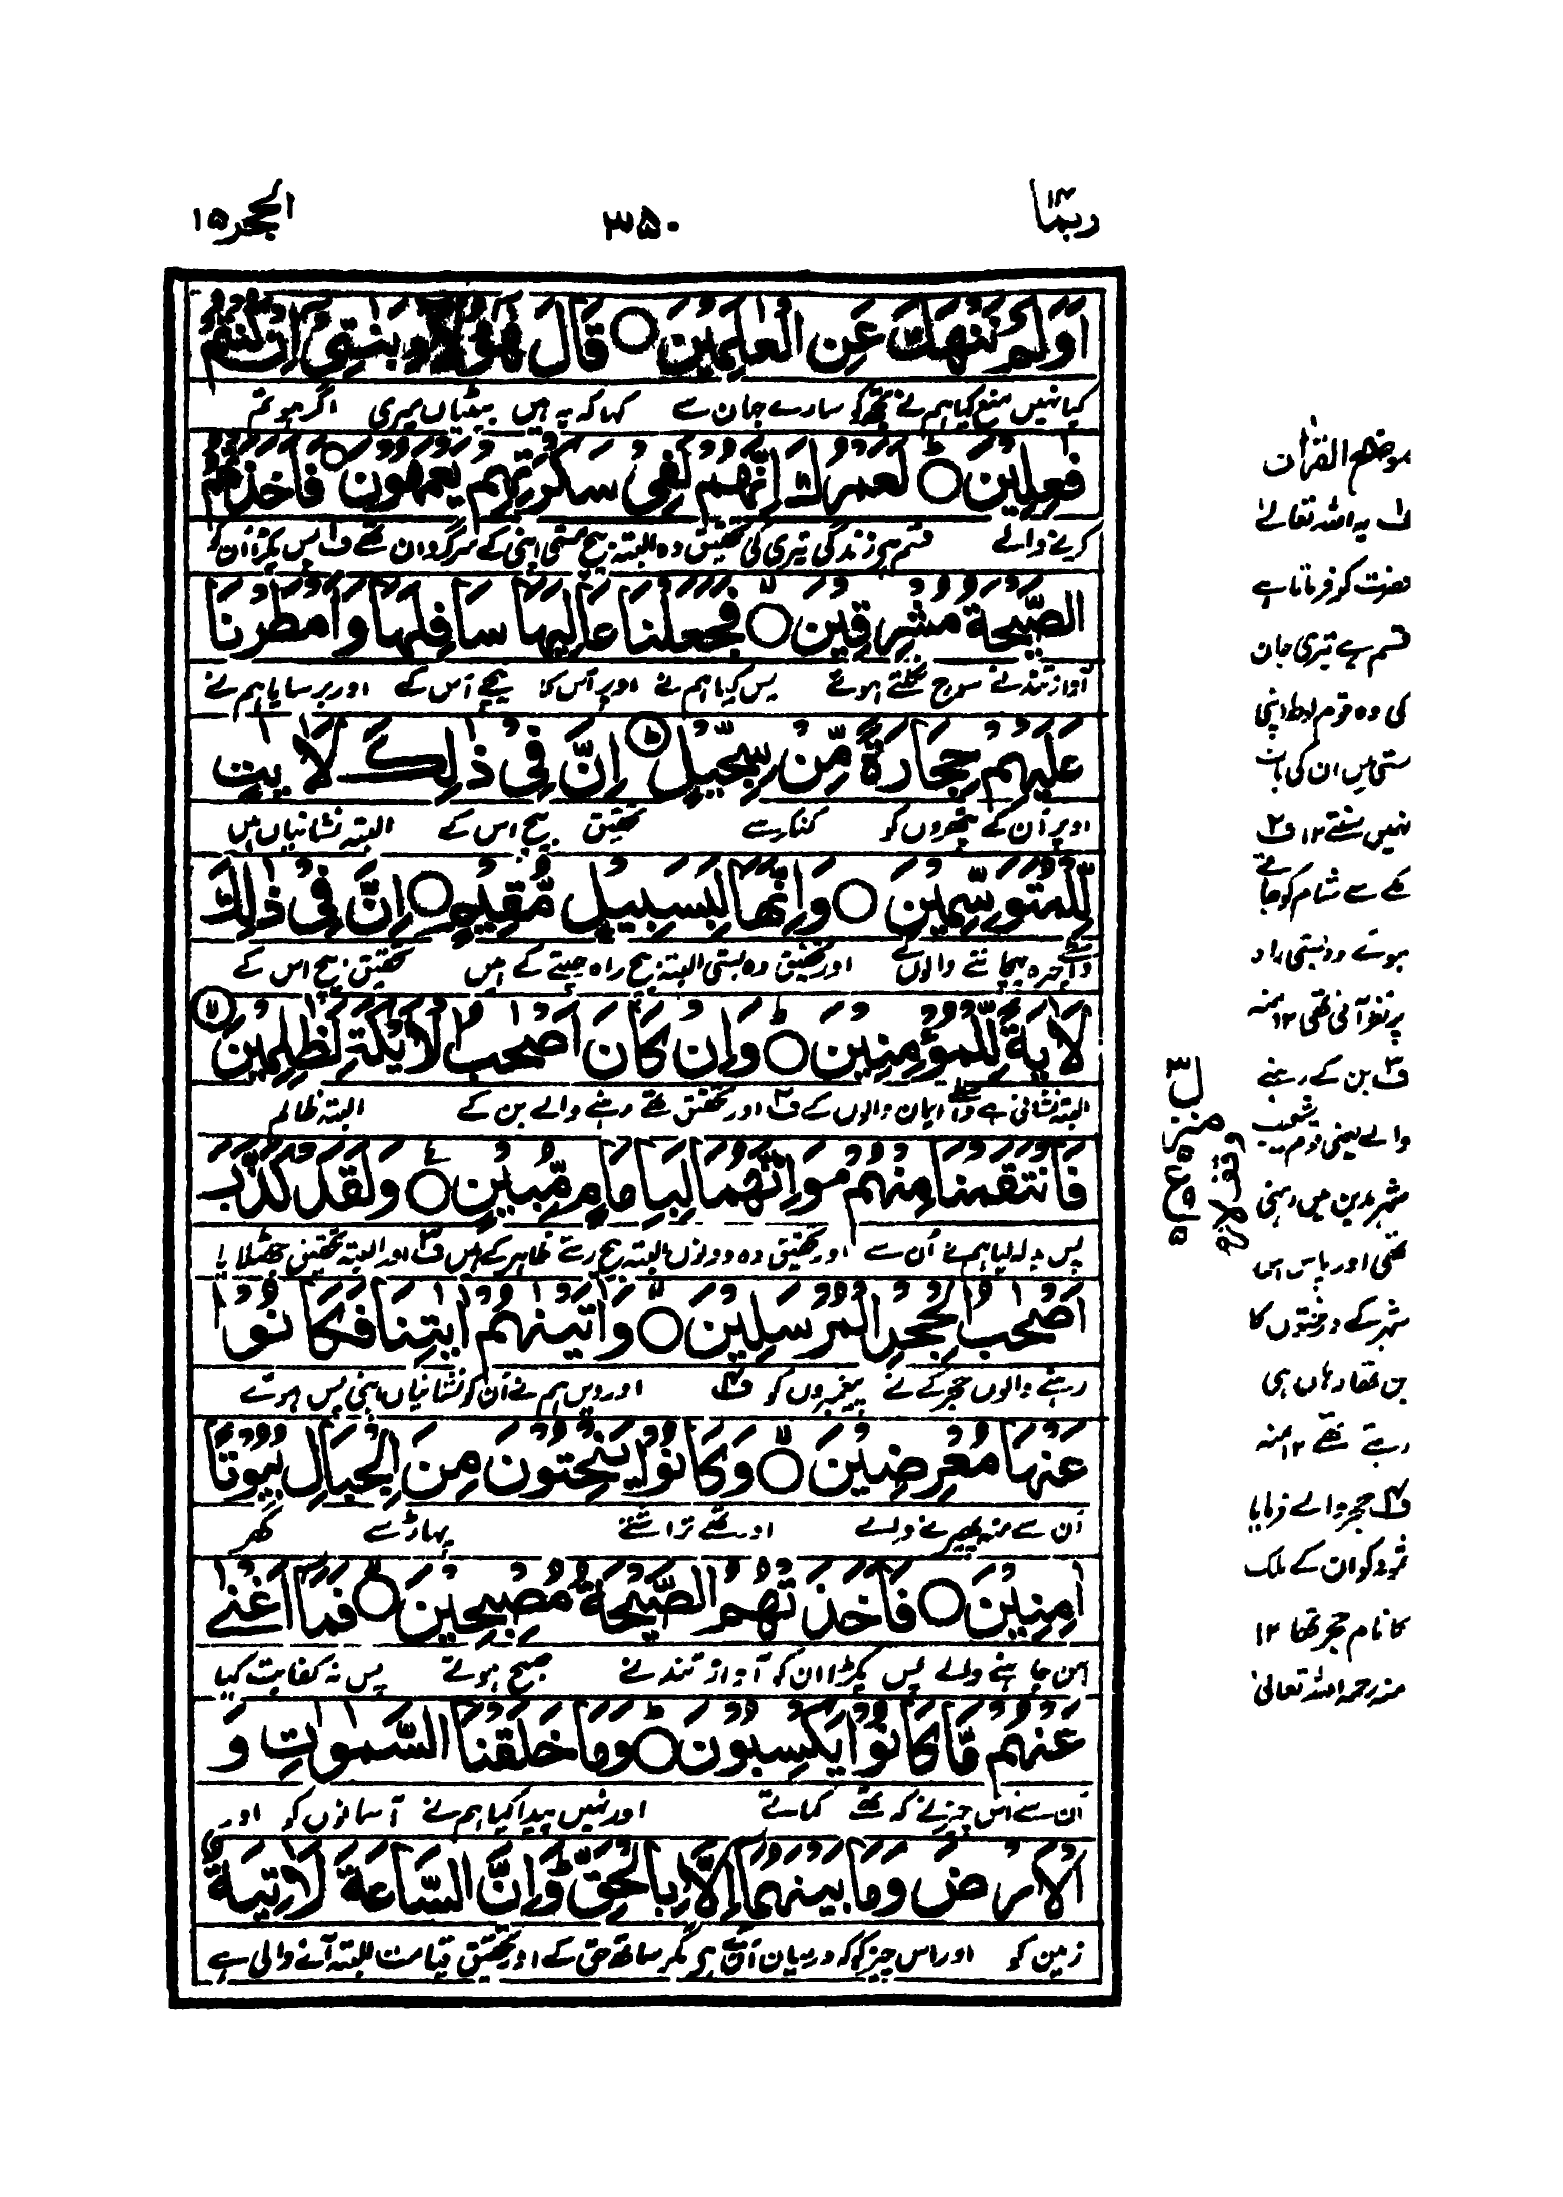 ربما ۱۴
۳۵۰
الحجر ۱۵
اَوَلَمْ نَنْهَكَ عَنِ الْعٰلَمِيْنَ ○ قَالَ هٰٓؤُلَآءِ بَنٰتِيْٓ اِنْ كُنْتُمْ
کیا نہیں منع کیا ہم نے تجھ کو سارے جہان سے کہا کہ یہ ہیں بیٹیاں میری اگر ہو تم
فٰعِلِيْنَ ○ؕ لَعَمْرُكَ اِنَّهُمْ لَفِيْ سَكْرَتِهِمْ يَعْمَهُوْنَ ○ فَاَخَذَتْهُمُ
کرنے والے قسم ہے زندگی تیری کی تحقیق وہ البتہ بیچ مستی اپنی کے سرگردان تھے ف۱ پس پکڑا اُن کو
الصَّيْحَةُ مُشْرِقِيْنَ ○ۙ فَجَعَلْنَا عَالِيَهَا سَافِلَهَا وَاَمْطَرْنَا
آواز تند نے سورج نکلتے ہوئے پس کیا ہم نے اوپر اُس کا نیچے اُس کے اور برسایا ہم نے
عَلَيْهِمْ حِجَارَةً مِّنْ سِجِّيْلٍ ○ؕ اِنَّ فِيْ ذٰلِكَ لَاٰيٰتٍ
اوپر اُن کے پتھروں کو کنکر سے تحقیق بیچ اس کے البتہ نشانیاں ہیں
لِّلْمُتَوَسِّمِيْنَ ○ وَاِنَّهَا لَبِسَبِيْلٍ مُّقِيْمٍ ○ اِنَّ فِيْ ذٰلِكَ
واسطے چہرہ پہچاننے والوں کے اور تحقیق وہ بستی البتہ بیچ راہ چلتے کے ہیں تحقیق بیچ اس کے
لَاٰيَةً لِّلْمُؤْمِنِيْنَ ○ؕ وَاِنْ كَانَ اَصْحٰبُ الْاَيْكَةِ لَظٰلِمِيْنَ ○ۙ
البتہ نشانی ہے واسطے ایمان والوں کے ف۲ اور تحقیق تھے رہنے والے بن کے البتہ ظالم
فَانْتَقَمْنَا مِنْهُمْ ۘ وَاِنَّهُمَا لَبِاِمَامٍ مُّبِيْنٍ ○ؕ وَلَقَدْ كَذَّبَ
پس بدلہ لیا ہم نے اُن سے اور تحقیق وہ دونوں البتہ بیچ رستے ظاہر کے ہیں ف۳ اور البتہ تحقیق جھٹلایا
اَصْحٰبُ الْحِجْرِ الْمُرْسَلِيْنَ ○ۙ وَاٰتَيْنٰهُمْ اٰيٰتِنَا فَكَانُوْا
رہنے والوں حجر کے نے پیغمبروں کو ف۴ اور دیں ہم نے اُن کو نشانیاں اپنی پس ہوئے
عَنْهَا مُعْرِضِيْنَ ○ۙ وَكَانُوْا يَنْحِتُوْنَ مِنَ الْجِبَالِ بُيُوْتًا
اُن سے منہ پھیرنے والے اور تھے تراشتے پہاڑ سے گھر
اٰمِنِيْنَ ○ فَاَخَذَتْهُمُ الصَّيْحَةُ مُصْبِحِيْنَ ○ۙ فَمَآ اَغْنٰى
امن چاہنے والے پس پکڑا ان کو آواز تند نے صبح ہوتے پس نہ کفایت کیا
عَنْهُمْ مَّا كَانُوْا يَكْسِبُوْنَ ○ؕ وَمَا خَلَقْنَا السَّمٰوٰتِ وَ
اُن سے اُس چیز نے کہ تھے کماتے اور نہیں پیدا کیا ہم نے آسمانوں کو اور
الْاَرْضَ وَمَا بَيْنَهُمَآ اِلَّا بِالْحَقِّ ؕ وَاِنَّ السَّاعَةَ لَاٰتِيَةٌ
زمین کو اور اس چیز کو کہ درمیان اُن کے ہے مگر ساتھ حق کے اور تحقیق قیامت البتہ آنے والی ہے
موضح القرآن
ف۱ یہ اللہ تعالیٰ
حضرت کو فرماتا ہے
قسم ہے تیری جان
کی وہ قوم لوط اپنی
مستی میں ان کی بات
نہیں سنتے ۱۲ ف۲
مکے سے شام کو جاتے
ہوئے وہ بستی راہ
پر نظر آتی تھی ۱۲ منہ
ف۳ بن کے رہنے
والے یعنی قوم شعیب
شہر مدین میں رہتی
تھی اور پاس اس
شہر کے درختوں کا
بن تھا وہاں ہی
رہتے تھے ۱۲ منہ
ف۴ حجر والے فرمایا
ثمود کو ان کے ملک
کا نام حجر تھا ۱۲
منہ رحمہ اللہ تعالیٰ
منزل ۳
وقف لازم